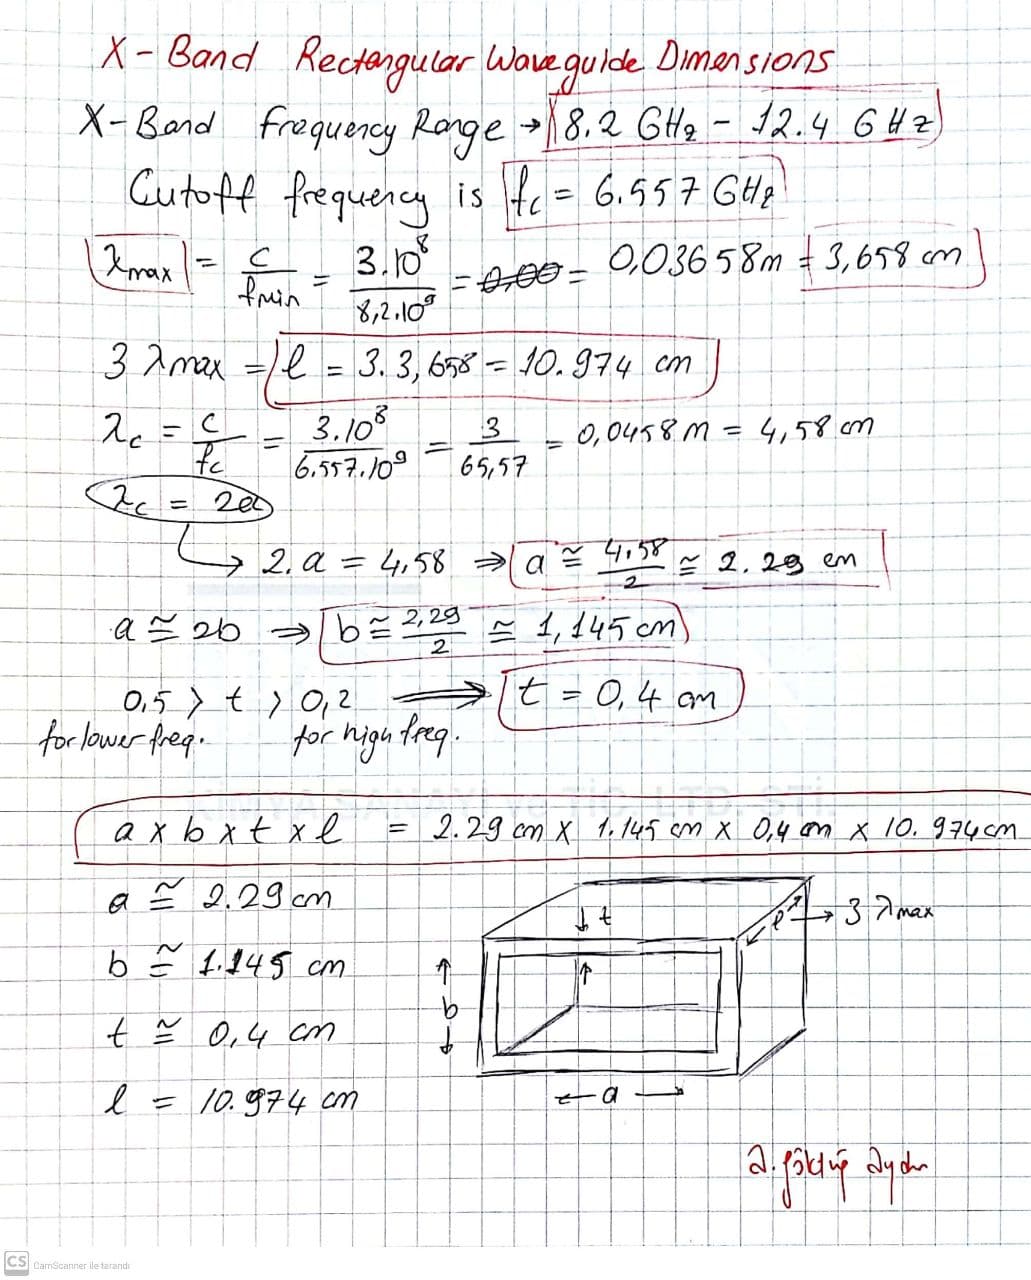 X-Band Rectangular Waveguide Dimensions
X-Band frequency Range → 8.2 GHz - 12.4 GHz
Cutoff frequency is fc = 6.557 GHz
λmax = c/fmin = 3.10⁸/8,2.10⁹ = 0,00 = 0,03658m = 3,658 cm
3 λmax = l = 3. 3,658 = 10.974 cm
λc = c/fc = 3.10⁸/6.557.10⁹ = 3/65,57 = 0,0458 m = 4,58 cm
λc = 2a
↳ 2.a = 4,58 ⇒ a ≅ 4,58/2 ≅ 2.29 cm
a ≅ 2b ⇒ b ≅ 2,29/2 ≅ 1,145 cm
0,5 > t > 0,2 ⟹ t = 0,4 cm
for lower freq. for high freq.
a x b x t x l = 2.29 cm x 1.145 cm x 0,4 cm x 10.974 cm
a ≅ 2.29 cm
b ≅ 1.145 cm
t ≅ 0,4 cm
l = 10.974 cm
↓ t
l → 3 λmax
↑ b ↓
← a →
CS CamScanner ile tarandı